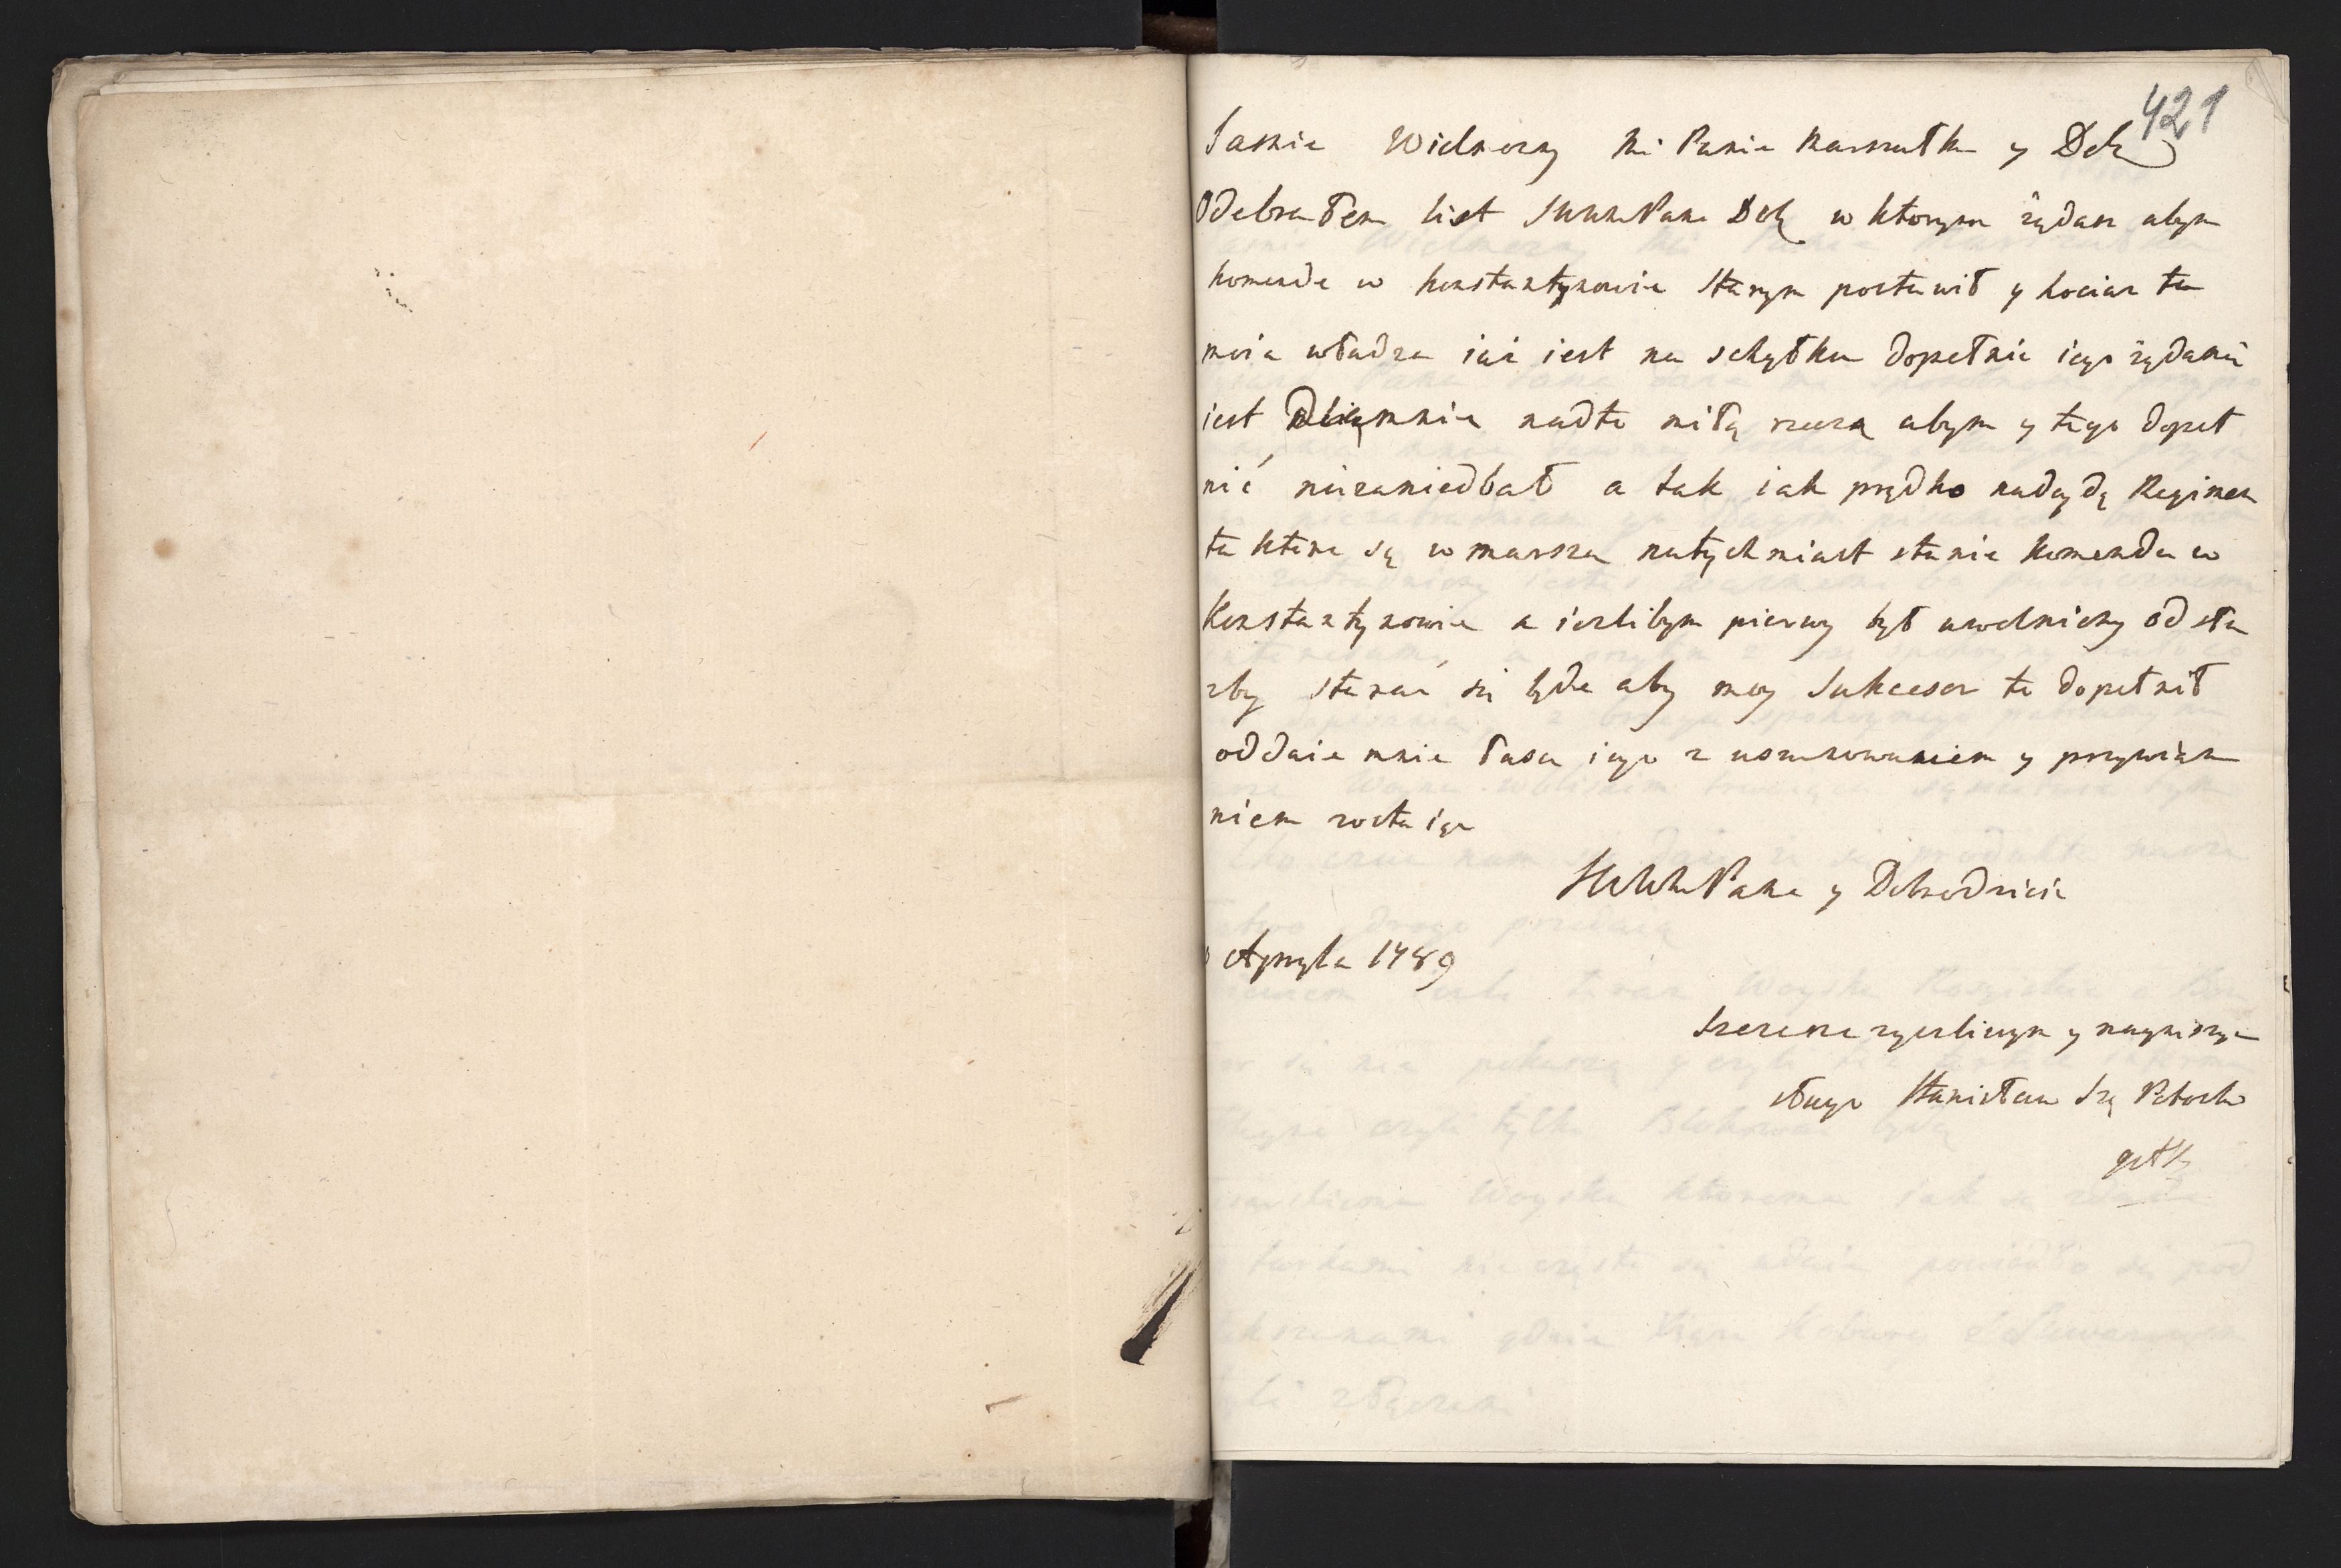 421
Jasnie Wielmozny Mi Panie Marszałku y Dob
Odebrałem list JWWMPana Dob w ktorym żądasz abym
komende w Konstantynowie Starym postawił y hociaz ta
moia władza iuż iest na schyłku dopełnie iego żądanie
iest dla mnie nadto miłą rzeczą abym y tego dopeł
nić niezaniedbał a tak iak prędko nadeydą Regimen
ta ktore są w marszu natychmiast stanie komenda w
Konstantynowie a iezlibym pierwy był uwolniony od słu
zby starać sie będe aby moy Sukcesor to dopełnił
oddaie mnie łasce iego z uszanowaniem y przywiąza
niem zostaię
JWWMPana y Dobrodzieia
Apryla 1789
Szczerze zyczliwym y nayniższym
sługo Stanisław Szę Potocki